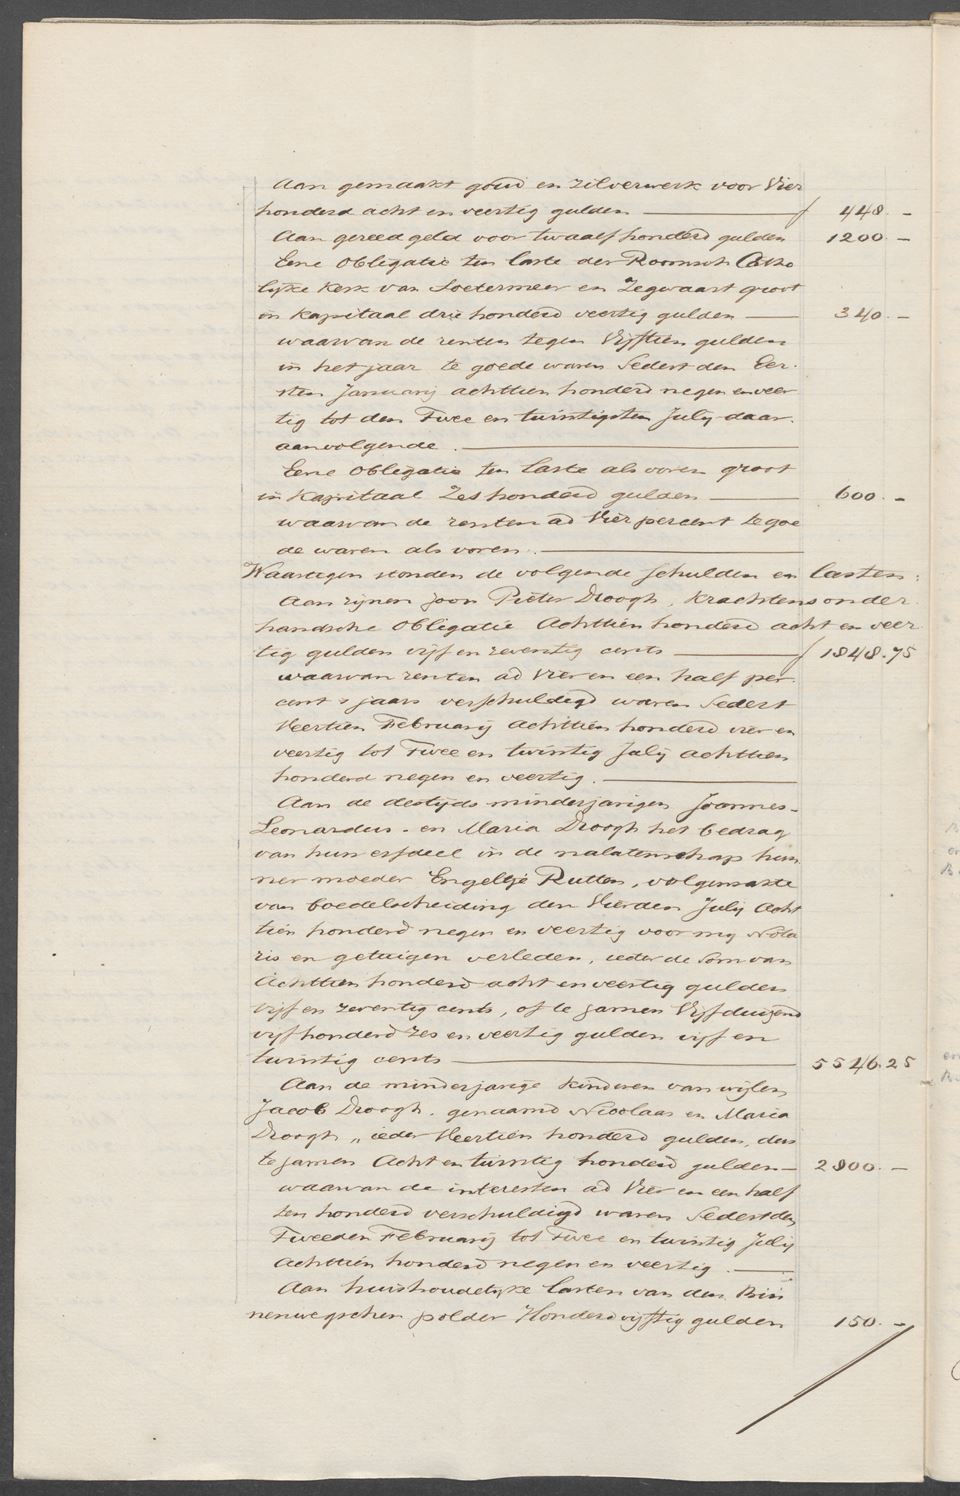 Aan gemaakt goud en zilverwerk voor Vier
honderd acht en veertig gulden ƒ 448.-
Aan gereed geld voor twaalf honderd gulden 1200.-
Eene Obligatie ten laste der Roomsch Catho
lyke Kerk van Soetermeer en Zegwaart groot
in Kapitaal drie honderd veertig gulden 340.-
waarvan de renten tegen Vijftien gulden
in het jaar te goede waren Sedert den Eer-
sten Januarij achttien honderd negen en veer
tig tot den Twee en twintigsten July daar-
aanvolgende.
Eene Obligatie ten laste als voren groot
in Kapitaal Zes honderd gulden 600.-
waarvan de renten ad Vier percent te goe
de waren als voren.
Waartegen stonden de volgende schulden en lasten:
Aan zijnen zoon Pieter Droogh, krachtens onder
handsche Obligatie Achttien honderd acht en veer
tig gulden vijf en zeventig cents ƒ 1848.75
waarvan renten ad Vier en een half per-
cent 's jaars verschuldigd waren Sedert
Veertien Februarij achttien honderd vier en
veertig tot Twee en twintig July achttien
honderd negen en veertig.
Aan de destijds minderjarigen Joannes-
Leonardus- en Maria Droogh het bedrag
van hun erfdeel in de nalatenschap hun
ner moeder Engeltje Rutten, volgens akte
van boedelscheiding den Vierden July Acht
tien honderd negen en veertig voor my Nota
ris en getuigen verleden, ieder de Som van
Achttien honderd acht en veertig gulden
vijf en zeventig cents, of te zamen Vijfduizend
vijf honderd zes en veertig gulden vijf en
twintig cents 5546.25
Aan de minderjarige kinderen van wijlen
Jacob Droogh, genaamd Nicolaas en Maria
Droogh, ieder Veertien honderd gulden, dus
te zamen Acht en twintig honderd gulden 2800.-
waarvan de interesten ad Vier en een half
ten honderd verschuldigd waren Sedert den
Tweeden Februarij tot Twee en twintig July
Achttien honderd negen en veertig.
Aan huishoudelyke lasten van den Bin
nenwegschen polder Honderd vijftig gulden 150.-